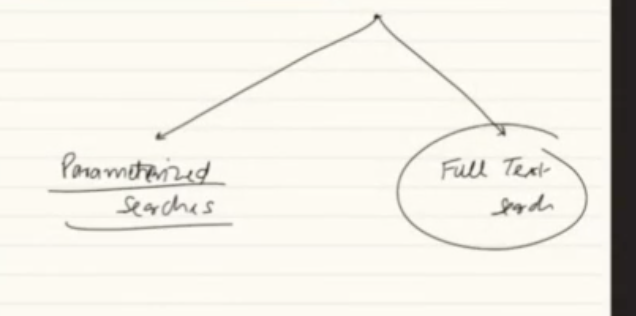 Parameterized
Searches
Full Text
search